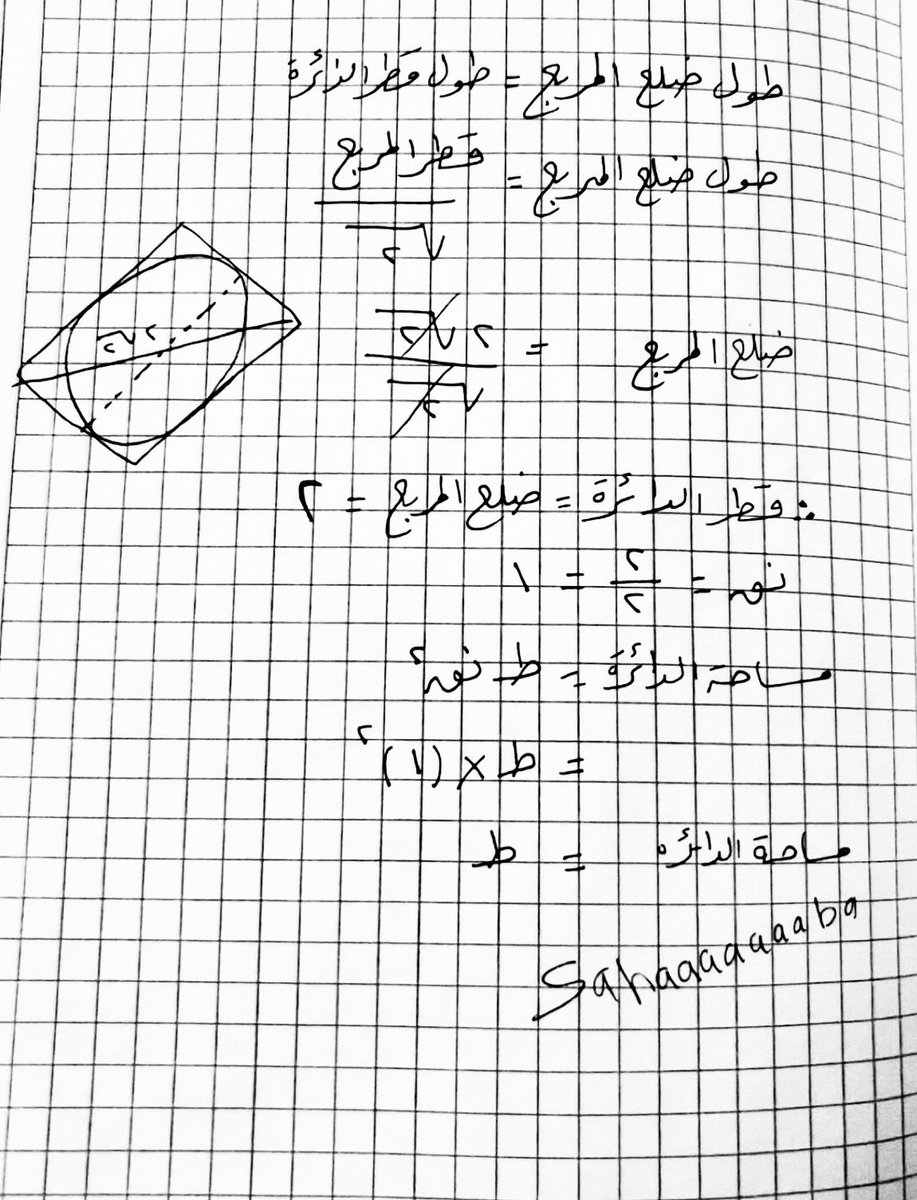 طول ضلع المربع = طول قطر الدائرة
طول ضلع المربع = قطر المربع / √٢
ضلع المربع = ٢√٢ / √٢
٢√٢
∴ قطر الدائرة = ضلع المربع = ٢
نق = ٢/٢ = ١
مساحة الدائرة = ط نق²
= ط × (١)²
مساحة الدائره = ط
Sahaaaaaaaaba